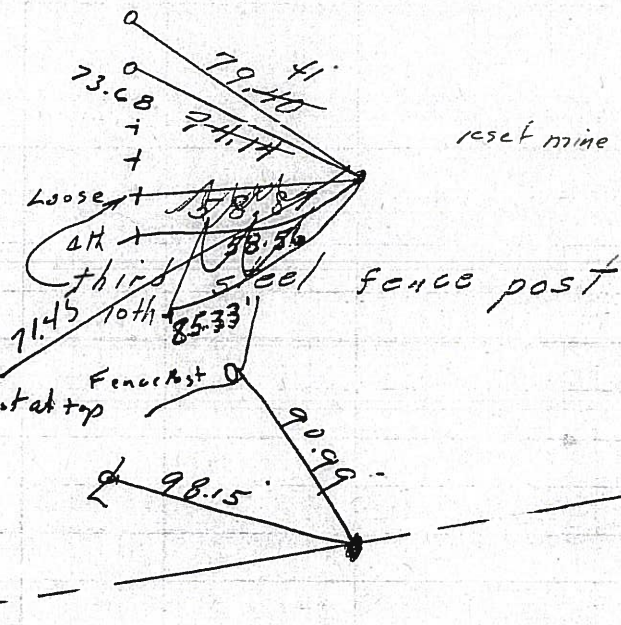 41'
79.40
73.68
74.14
reset mine
Loose
4th
58.56
third steel fence post
10th
85.33'
71.45
Fence Post
st at top
90.99
98.15'